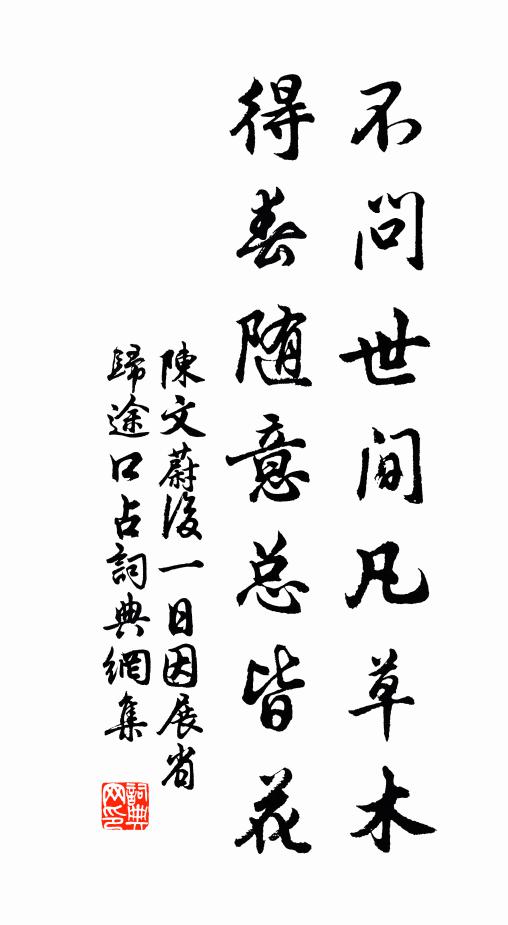 不问世间凡草木
得春随意总皆花
陳文蔚後一日因展省
歸途口占詞典網集
詞典网印